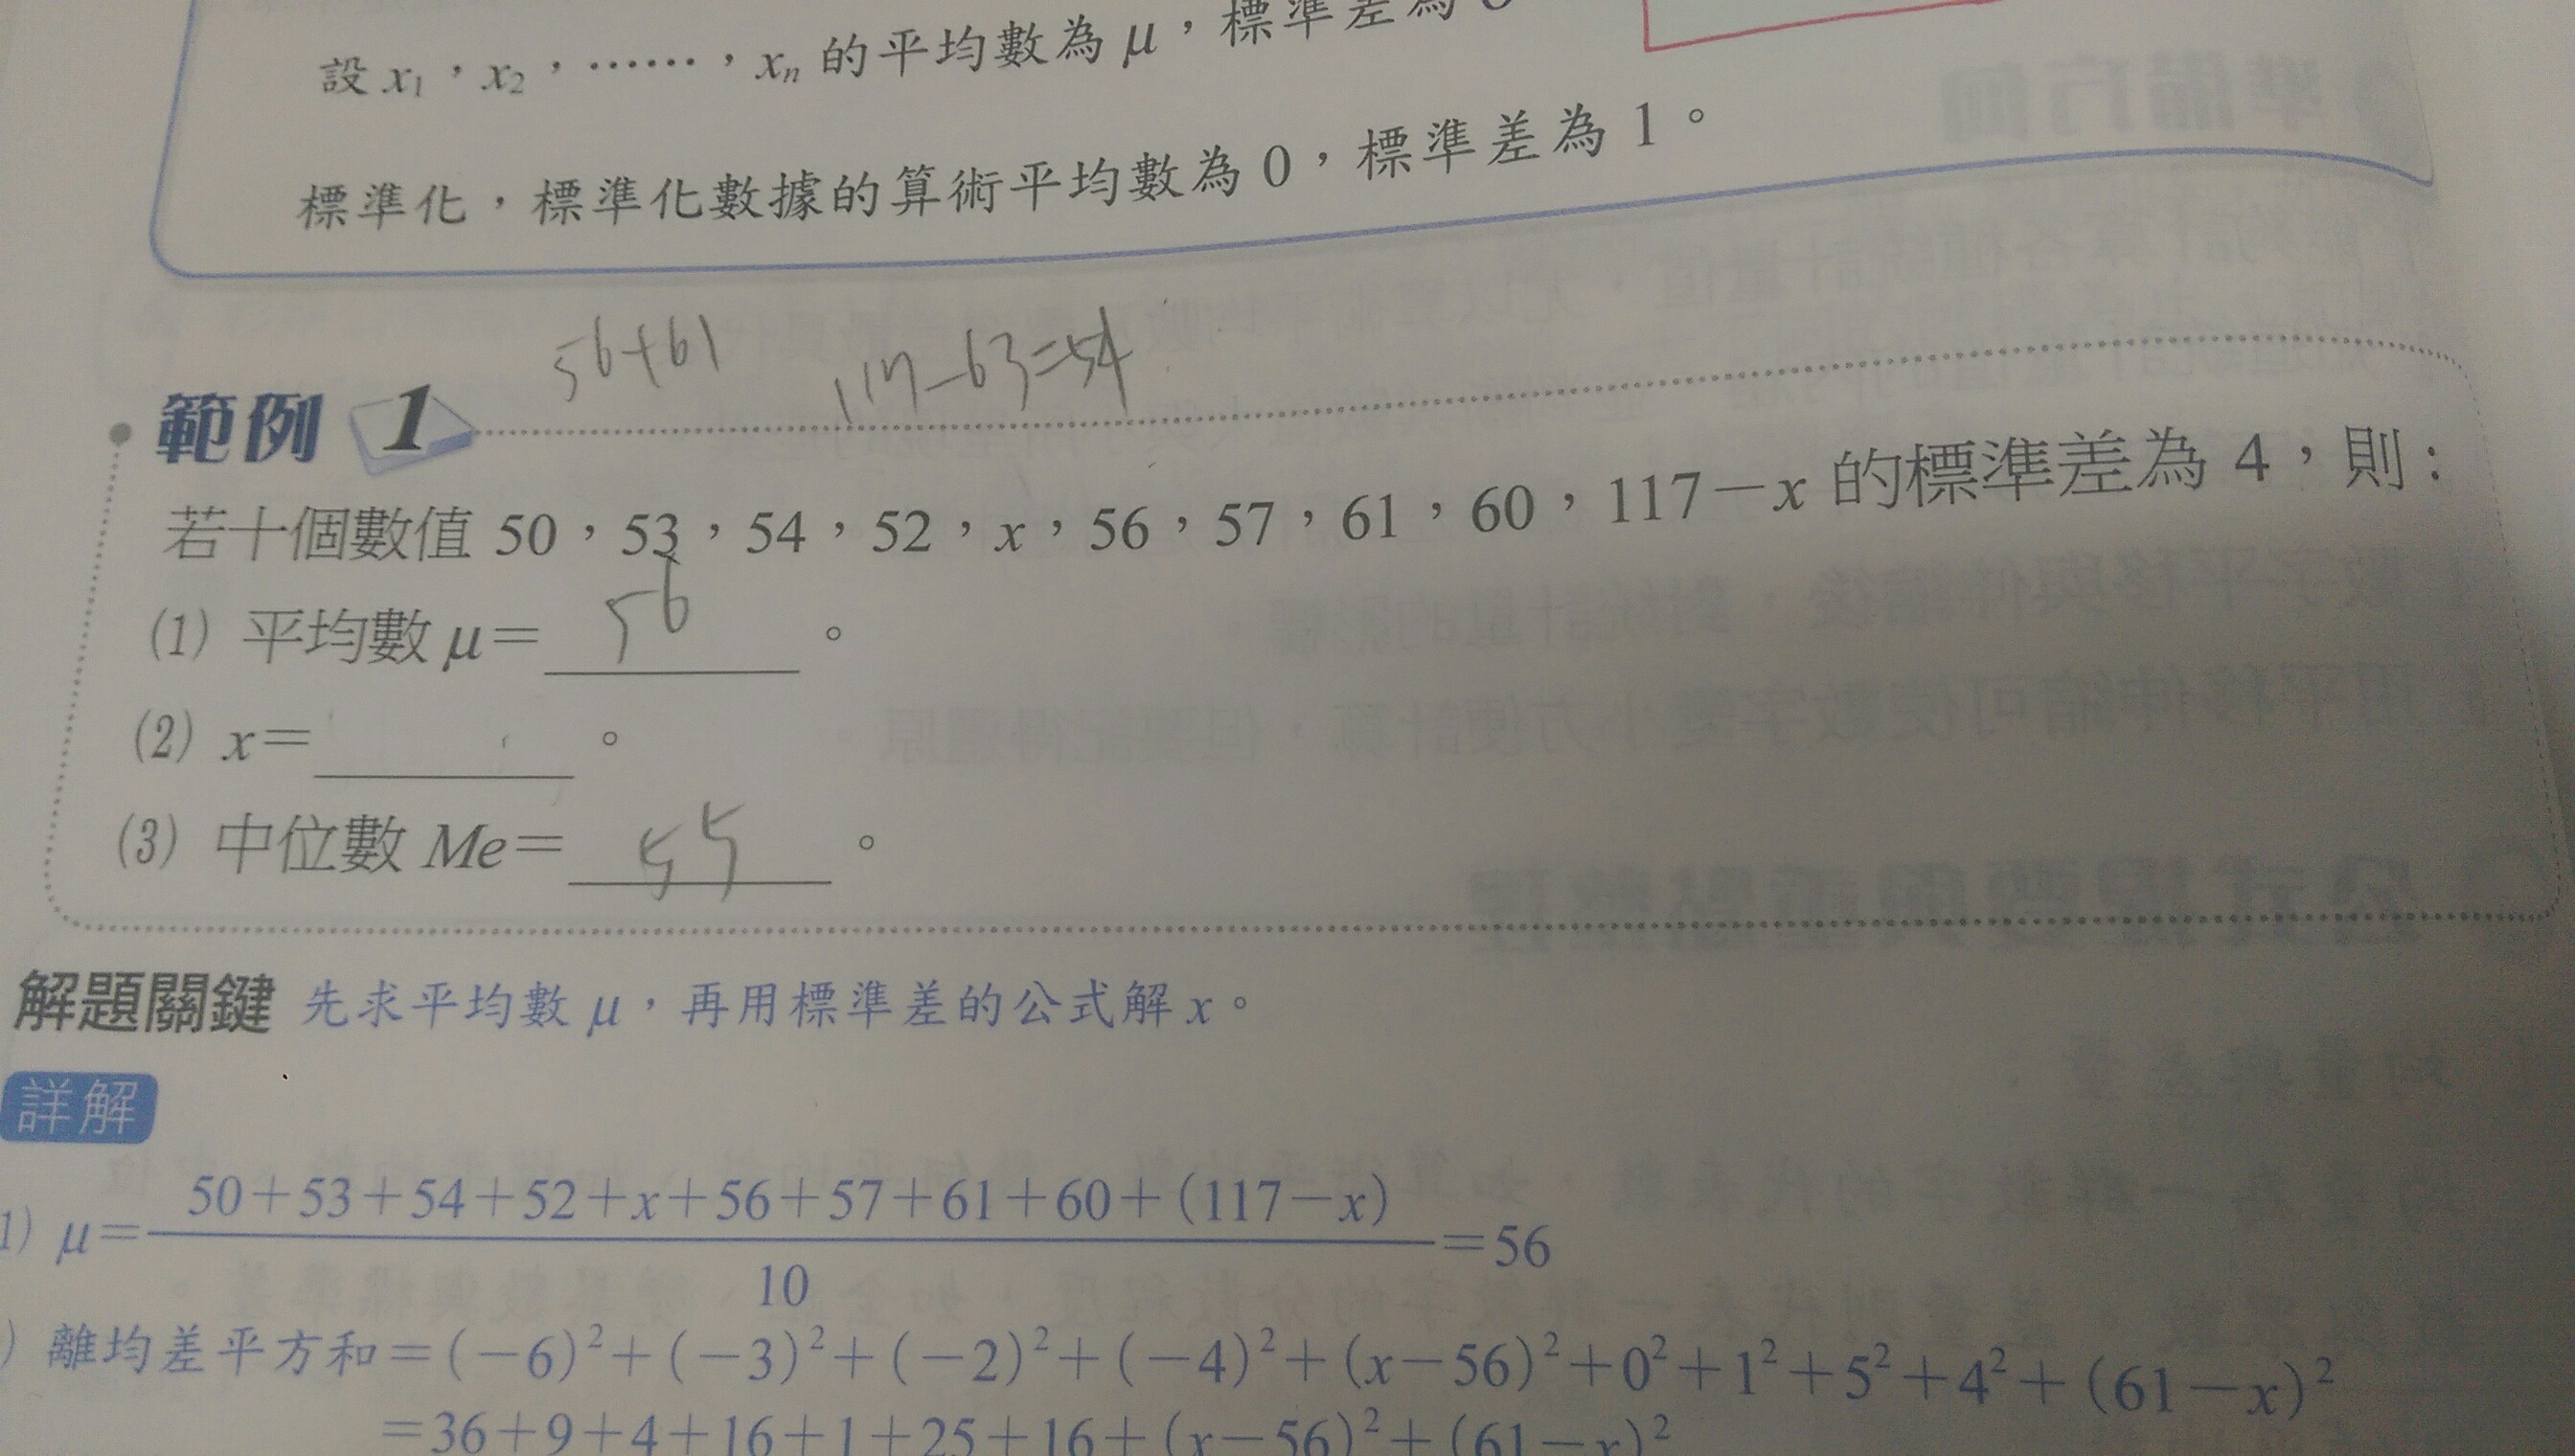 設 x₁，x₂，……，xₙ 的平均數為 μ，標準差為
標準化，標準化數據的算術平均數為 0，標準差為 1。
56+61 117-63=54
範例 1
若十個數值 50，53，54，52，x，56，57，61，60，117－x 的標準差為 4，則：
(1) 平均數 μ＝ 56 。
(2) x＝ 。
(3) 中位數 Me＝ 55 。
解題關鍵 先求平均數 μ，再用標準差的公式解 x。
詳解
1) μ＝(50＋53＋54＋52＋x＋56＋57＋61＋60＋(117－x))/10＝56
) 離均差平方和＝(－6)²＋(－3)²＋(－2)²＋(－4)²＋(x－56)²＋0²＋1²＋5²＋4²＋(61－x)²
＝36＋9＋4＋16＋1＋25＋16＋(x－56)²＋(61－x)²